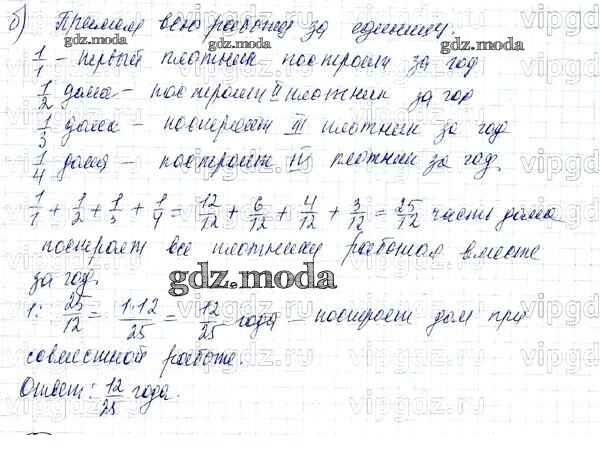 б) Примем всю работу за единицу.
1/1 - первый плотник построит за год
1/2 дома - построит II плотник за год
1/3 дома - построит III плотник за год
1/4 дома - построит IV плотник за год.
1/1 + 1/2 + 1/3 + 1/4 = 12/12 + 6/12 + 4/12 + 3/12 = 25/12 части дома
построят все плотники работая вместе
за год.
1 : 25/12 = 1·12/25 = 12/25 года - построят дом при
совместной работе.
Ответ: 12/25 года.
gdz.moda
gdz.moda
gdz.moda
gdz.moda
gdz.moda
gdz.moda
vipgdz.ru